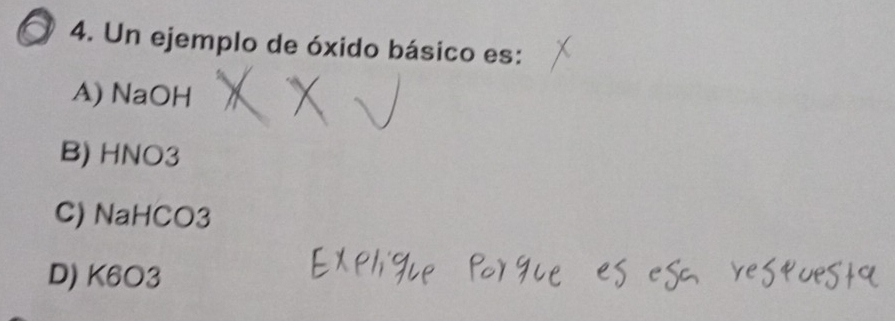 4. Un ejemplo de óxido básico es:
A) NaOH
B) HNO3
C) NaHCO3
D) K6O3
Explique Porque es esa respuesta